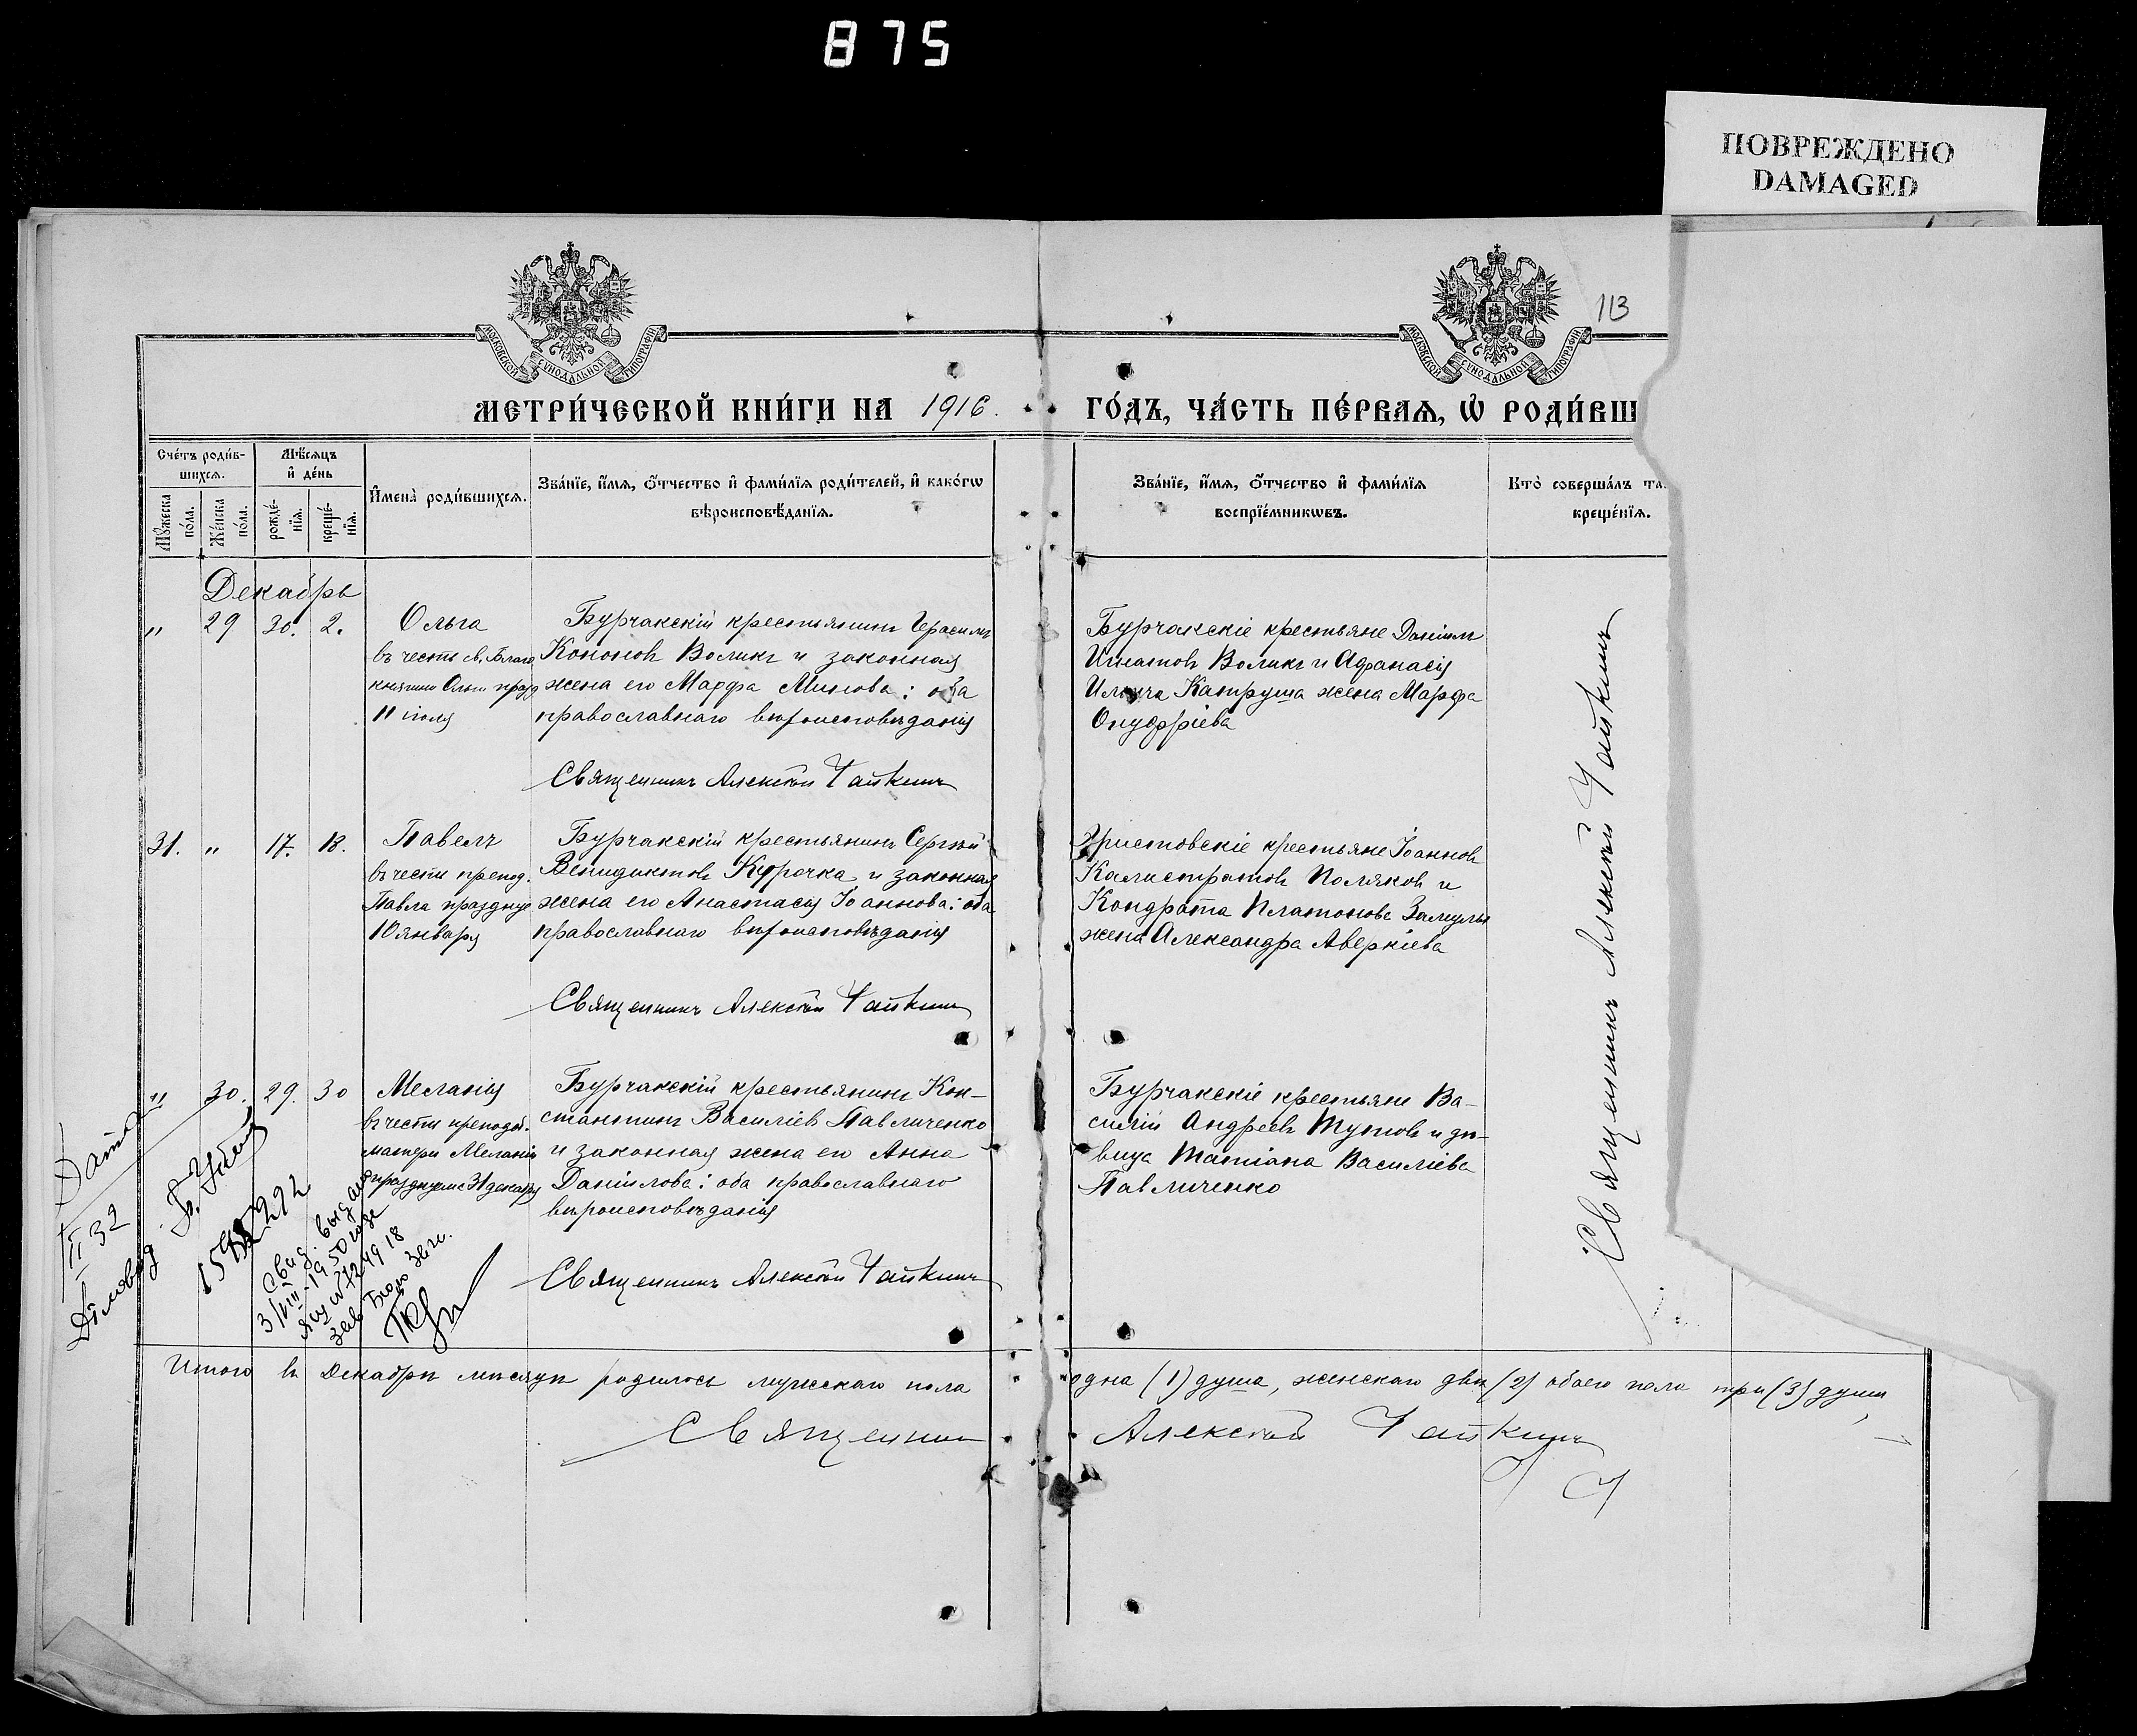 875
ПОВРЕЖДЕНО
DAMAGED
113
МОСКОВСКОЙ СѴНОДАЛЬНОЙ ТИПОГРАФІИ
МОСКОВСКОЙ СѴНОДАЛЬНОЙ ТИПОГРАФІИ
МЕТРИ́ЧЕСКОЙ КНИ́ГИ НА 1916. ГО́ДЪ, ЧА́СТЬ ПЕ́РВАѦ, Ѡ҆ РОДИ́ВШ
Сче́тъ роди́в-
шихсѧ.
Мѹ́жеска
по́ла.
Же́нска
по́ла.
Мѣ́сѧцъ
и҆ де́нь
рожде́-
нїѧ.
креще́-
нїѧ.
И҆мена̀ роди́вшихсѧ.
Зва́нїе, и҆́мѧ, ѻ҆́тчество и҆ фами́лїѧ роди́телей, и҆ како́гѡ
вѣроисповѣ́данїѧ.
Зва́нїе, и҆́мѧ, ѻ҆́тчество и҆ фами́лїѧ
воспрїе́мникѡвъ.
Кто̀ соверша́лъ та
креще́нїѧ.
Декабрь
" 29 30. 2.
Ольга
въ честь св. Благо
княгини Ольги празд
11 іюля
Бурчакскій крестьянинъ Герасимъ
Кононовъ Воликъ и законная
жена его Марфа Минова: оба
православнаго вѣроисповѣданія
Священникъ Алексѣй Чайкинъ
Бурчакскіе крестьяне Даніилъ
Игнатовъ Воликъ и Афанасія
Ильича Катруша жена Марфа
Онуфріева
31. " 17. 18.
Павелъ
въ честь препод.
Павла празднуе
10 января
Бурчакскій крестьянинъ Сергѣй
Венидиктовъ Курочка и законная
жена его Анастасія Іоаннова: оба
православнаго вѣроисповѣданія
Священникъ Алексѣй Чайкинъ
Христовскіе крестьяне Іоанновъ
Калистратовъ Поляковъ и
Кондрата Платонова
жена Александра Аверкіева
" 30. 29. 30
Меланія
въ честь преподоб.
матери Меланіи
празднуемс 31 декабря
Бурчакскій крестьянинъ Кон-
стантинъ Василіев Павличенко
и законная жена его Анна
Даніилова: оба православнаго
вѣроисповѣданія
Священникъ Алексѣй Чайкинъ
Бурчакскіе крестьяне Ва-
силій Андреевъ Тутовъ и дѣ-
вица Татіана Василіева
Павличенко
Священникъ Алексѣй Чайкинъ
II 32
Діловод
Свид. выдано
3/VIII-1950 года
ЯЦ № 724918
зав бюро загс.
Итого въ Декабрѣ мѣсяцѣ родилось мужескаго пола одна (1) душа, женскаго двѣ (2) обоего пола три (3) души
Священникъ Алексѣй Чайкинъ